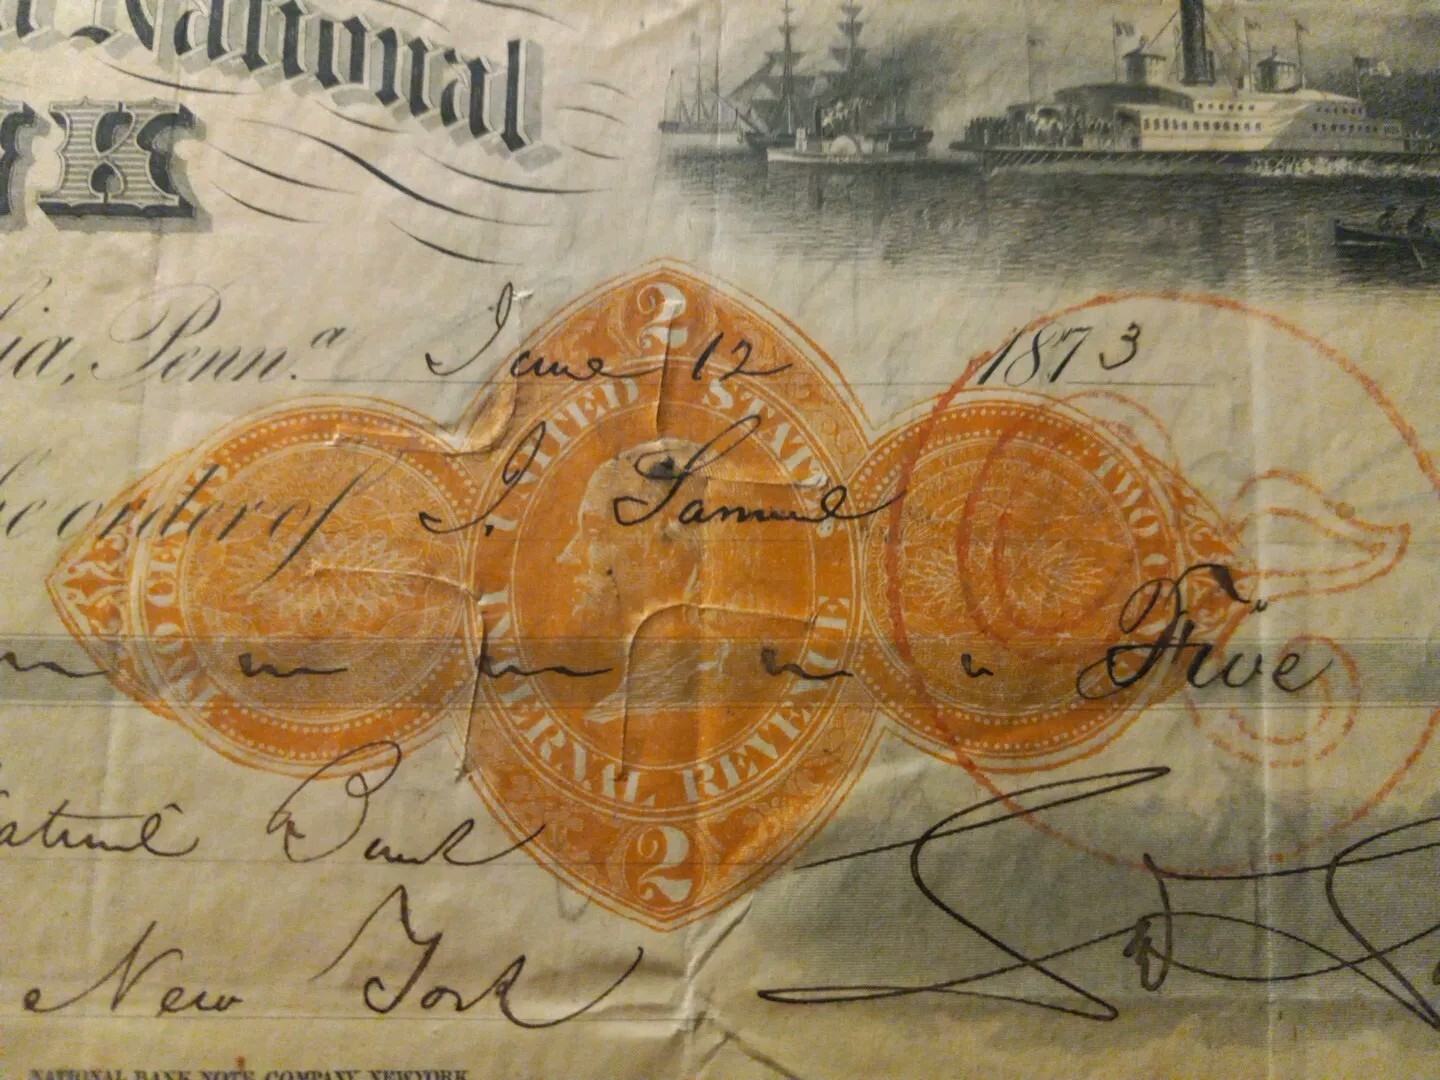 National
K
ia, Penn.ª June 12 1873
2
UNITED STATES
TWO CENTS
TWO CE
the order of J. Samuel
Five
INTERNAL REVENUE
2
Bank
New York
NATIONAL BANK NOTE COMPANY NEW YORK